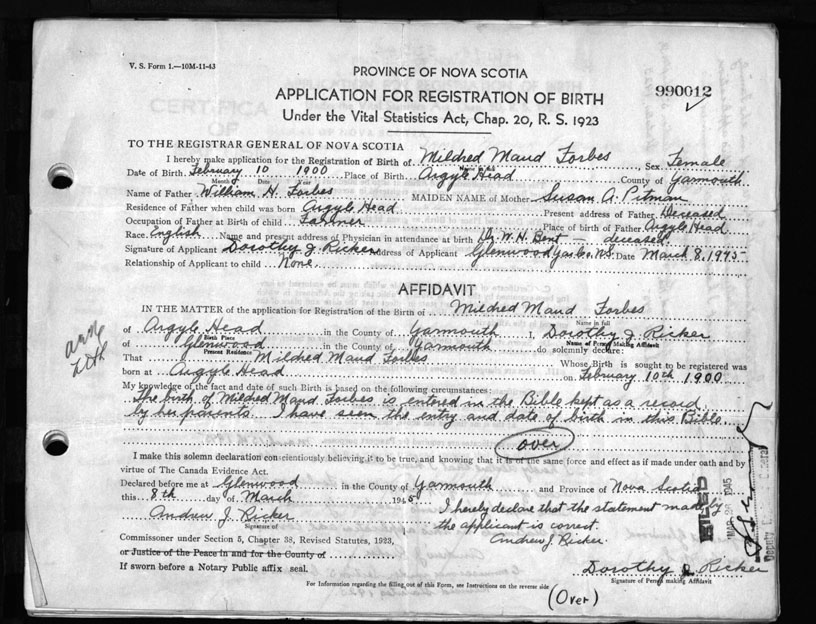 V. S. Form 1.—10M-11-43
PROVINCE OF NOVA SCOTIA
990012
APPLICATION FOR REGISTRATION OF BIRTH
Under the Vital Statistics Act, Chap. 20, R. S. 1923
TO THE REGISTRAR GENERAL OF NOVA SCOTIA
I hereby make application for the Registration of Birth of Mildred Maud Forbes, Sex Female
Name in full
Date of Birth February 10 1900 Place of Birth Argyle Head County of Yarmouth
Month Date Year
Name of Father William H. Forbes MAIDEN NAME of Mother Susan A. Pitman
Residence of Father when child was born Argyle Head Present address of Father Deceased
Occupation of Father at Birth of child Place of birth of Father Argyle Head
Race English Name and present address of Physician in attendance at birth Dr. W. H. Bent deceased
Signature of Applicant Dorothy J. Ricker Address of Applicant Glenwood Yar. Co. N.S. Date March 8, 1945
Relationship of Applicant to child None
AFFIDAVIT
IN THE MATTER of the application for Registration of the Birth of Mildred Maud Forbes
Name in full
of Argyle Head in the County of Yarmouth I, Dorothy J. Ricker
Birth Place Name of Person Making Affidavit
of Glenwood in the County of Yarmouth do solemnly declare:
Present Residence
That Mildred Maud Forbes Whose Birth is sought to be registered was
born at Argyle Head on February 10th 1900
My knowledge of the fact and date of such Birth is based on the following circumstances:
The birth of Mildred Maud Forbes is entered in the Bible kept as a record
by her parents. I have seen the entry and date of birth in this Bible.
over
I make this solemn declaration conscientiously believing it to be true, and knowing that it is of the same force and effect as if made under oath and by
virtue of The Canada Evidence Act.
Declared before me at Glenwood in the County of Yarmouth and Province of Nova Scotia
this 8th day of March 1945
I hereby declare that the statement made by
Andrew J. Ricker
the applicant is correct.
Signature of
Andrew J. Ricker.
Commissioner under Section 5, Chapter 38, Revised Statutes, 1923,
or Justice of the Peace in and for the County of
If sworn before a Notary Public affix seal.
Dorothy J. Ricker
Signature of Person making Affidavit
For Information regarding the filling out of this Form, see Instructions on the reverse side
(Over)
FILED
MAR 28 1945
Deputy